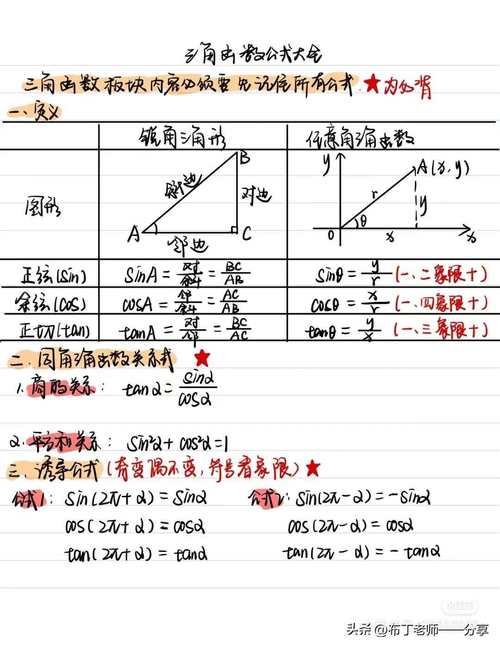 三角函数公式大全
三角函数板块内容必须要先记住所有公式 ★为必背
一、定义
锐角三角形 任意角三角函数
图形
B
斜边
对边
A
邻边
C
y
A(x,y)
r
y
θ
O
x
x
正弦(sin) sinA=对/斜=BC/AB sinθ=y/r(一、二象限+)
余弦(cos) cosA=邻/斜=AC/AB cosθ=x/r(一、四象限+)
正切(tan) tanA=对/邻=BC/AC tanθ=y/x(一、三象限+)
二、同角三角函数关系式 ★
1.商的关系: tanα=sinα/cosα
2.平方和关系: sin²α+cos²α=1
三、诱导公式(奇变偶不变,符号看象限)★
公式1: sin(2π+α)=sinα 公式2: sin(2π-α)=-sinα
cos(2π+α)=cosα cos(2π-α)=cosα
tan(2π+α)=tanα tan(2π-α)=-tanα
小红书
头条@布丁老师——分享